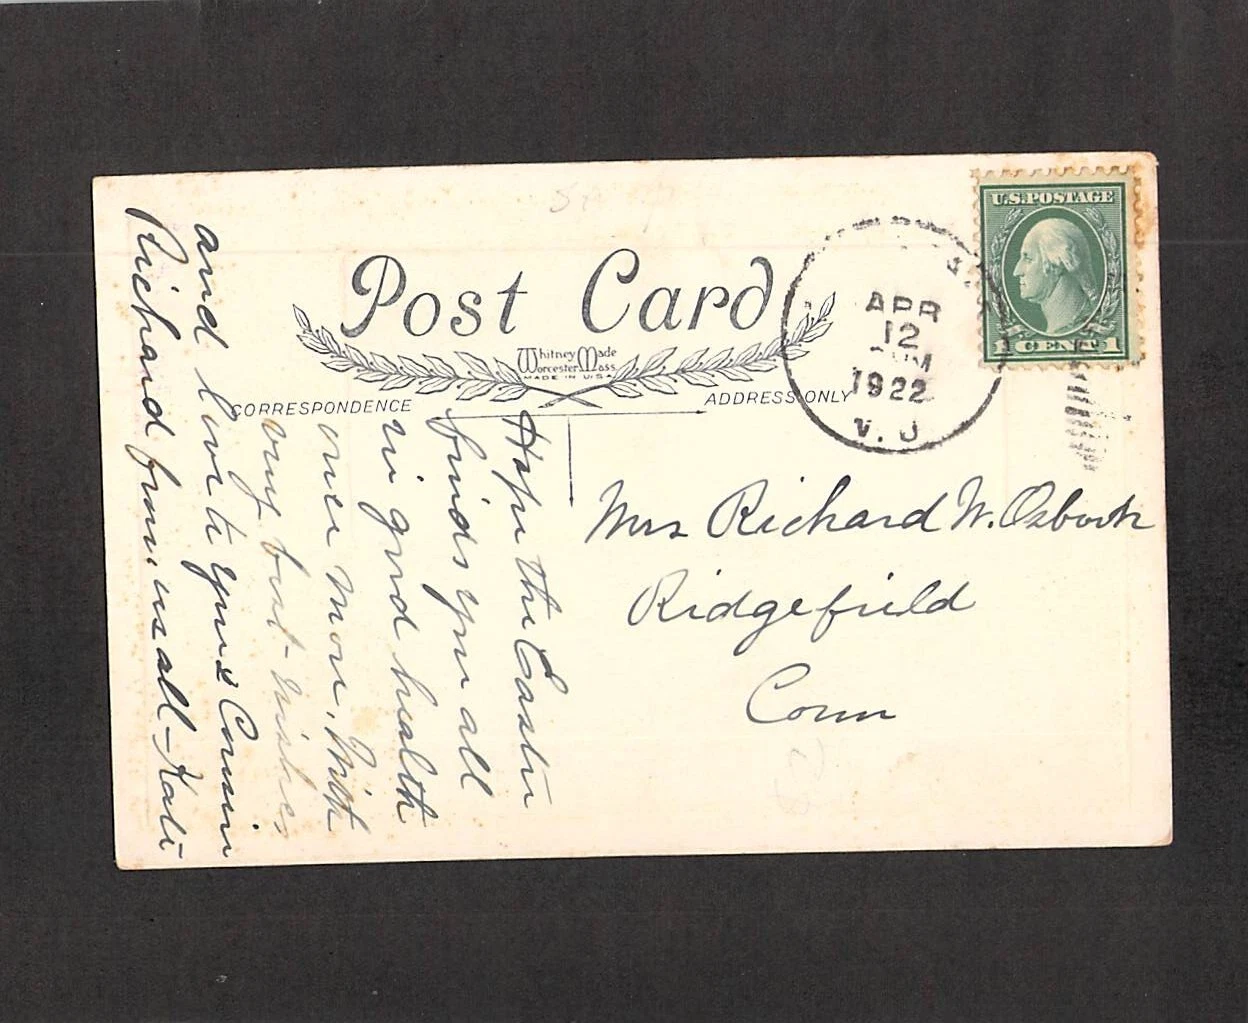 U.S. POSTAGE
1 CENT 1
APR
12
M
1922
Post Card
Whitney Made
Worcester, Mass.
MADE IN U.S.A.
CORRESPONDENCE
ADDRESS ONLY
Mrs Richard W. Osborn
Ridgefield
Conn
Hope this Easter
finds you all
in good health
once more. With
my best wishes
and love to you & Cousin
Richard from us all - Kate